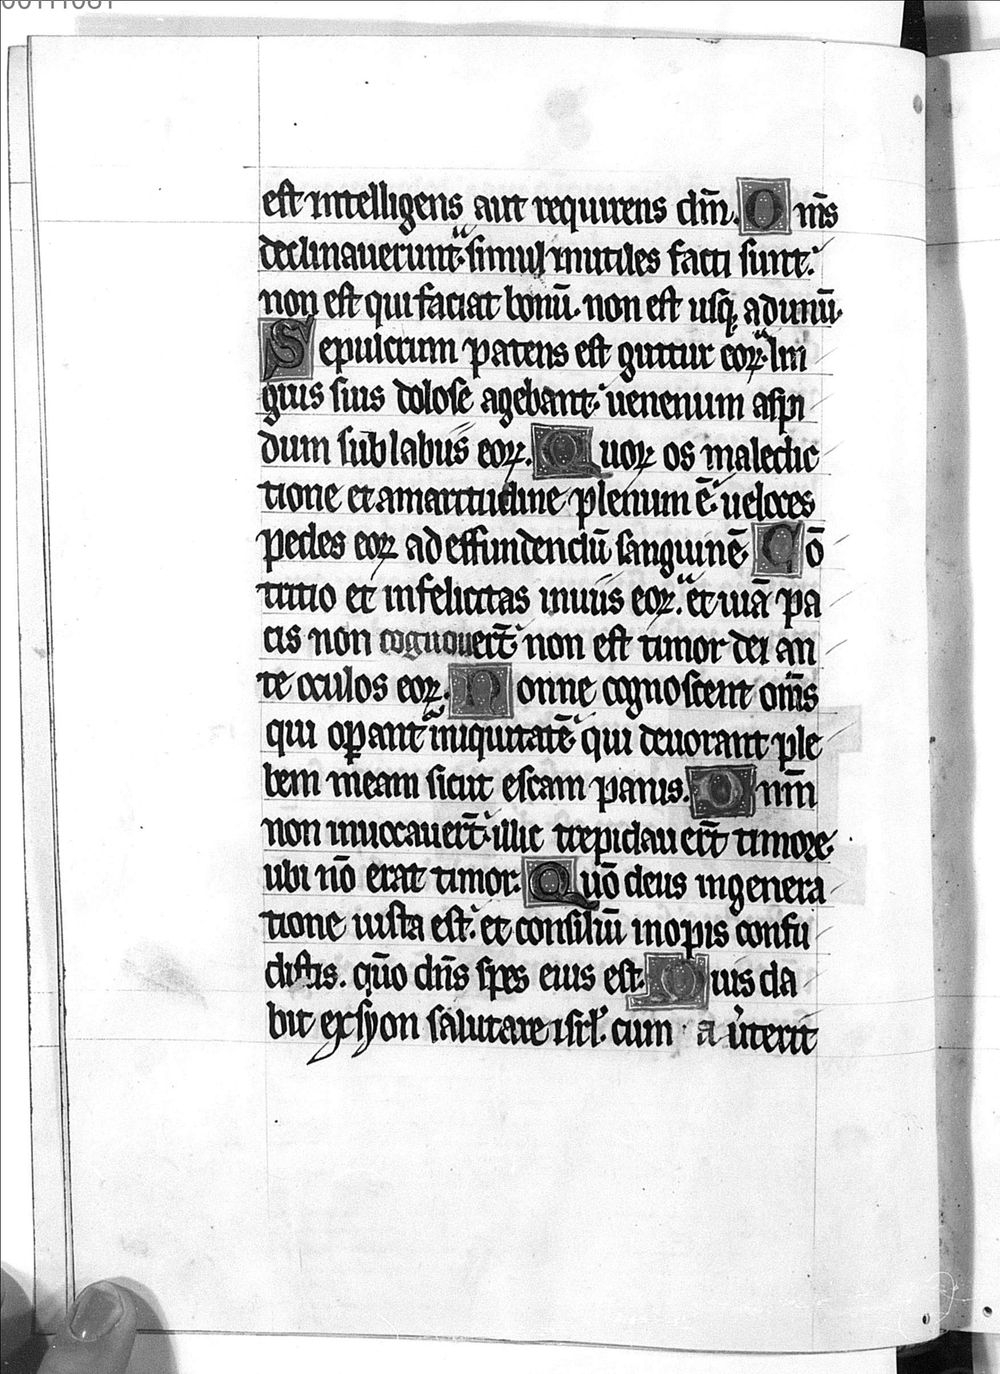 est intelligens aut requirens dm̄. Om̄s
declinauerunt simul inutiles facti sunt
non est qui faciat bonū. non est usq; ad unū.
Sepulcrum patens est guttur eoꝝ lin
guis suis dolose agebant uenenum aspi
dum sub labiis eoꝝ. Quoꝝ os maledic
tione et amaritudine plenum ē ueloces
pedes eoꝝ ad effundendū sanguinē Cō
tritio et infelicitas inuiis eoꝝ. et uiā pa
cis non cognouert̄ non est timor dei an
te oculos eoꝝ. Nonne cognoscent om̄s
qui oꝑant iniquitatē qui deuorant ple
bem meam sicut escam panis. Dnm̄
non inuocauert̄ illic trepidauert̄ timore
ubi nō erat timor. Quō deus in genera
tione iusta est. et consiliū inopis confu
distis. qūo dn̄s spes eius est Quis da
bit ex syon salutare isrl̄. cum auerterit